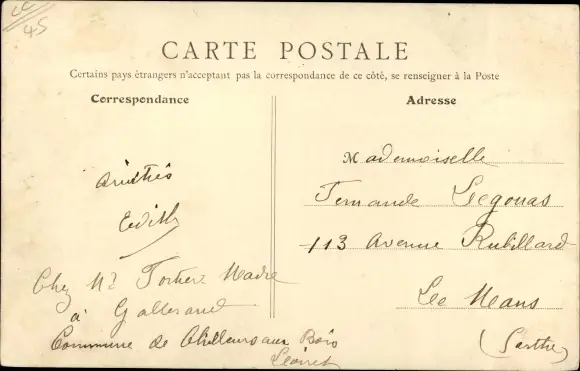 CC
45
CARTE POSTALE
Certains pays étrangers n'acceptant pas la correspondance de ce côté, se renseigner à la Poste
Correspondance
Amitiés
Edith
Chez Mr
à Gallerand
Commune de Chilleurs aux Bois
Loiret
Adresse
Mademoiselle
Fernande Legouas
113 Avenue Rubillard
Le Mans
(Sarthe)